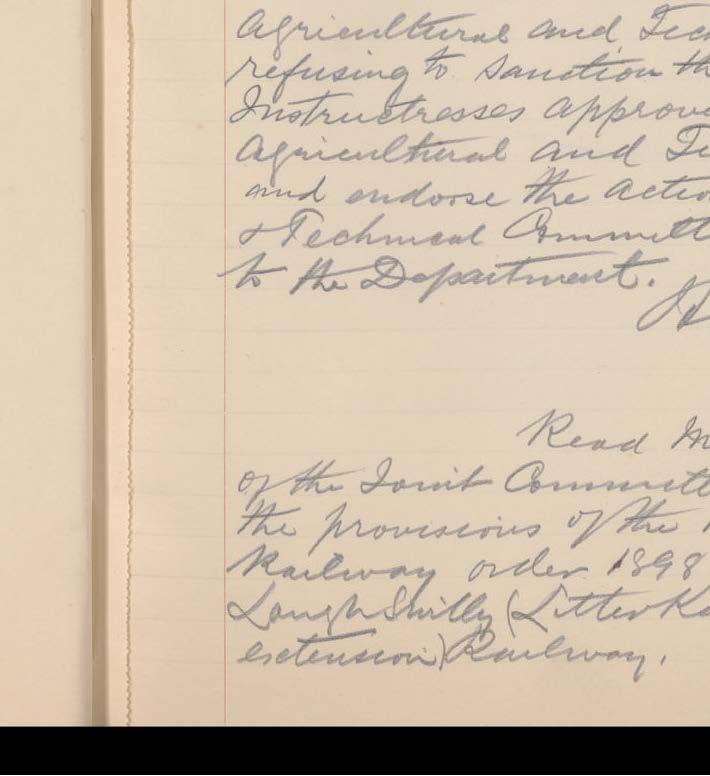 Agricultural and Tec
refusing to sanction th
Instructresses approve
Agricultural and Te
and endorse the actio
& Technical Committ
to the Department.
Read M
of the Joint Committ
the provisions of the
Railway order 1898
Lough Swilly (Letterke
extension) Railway.